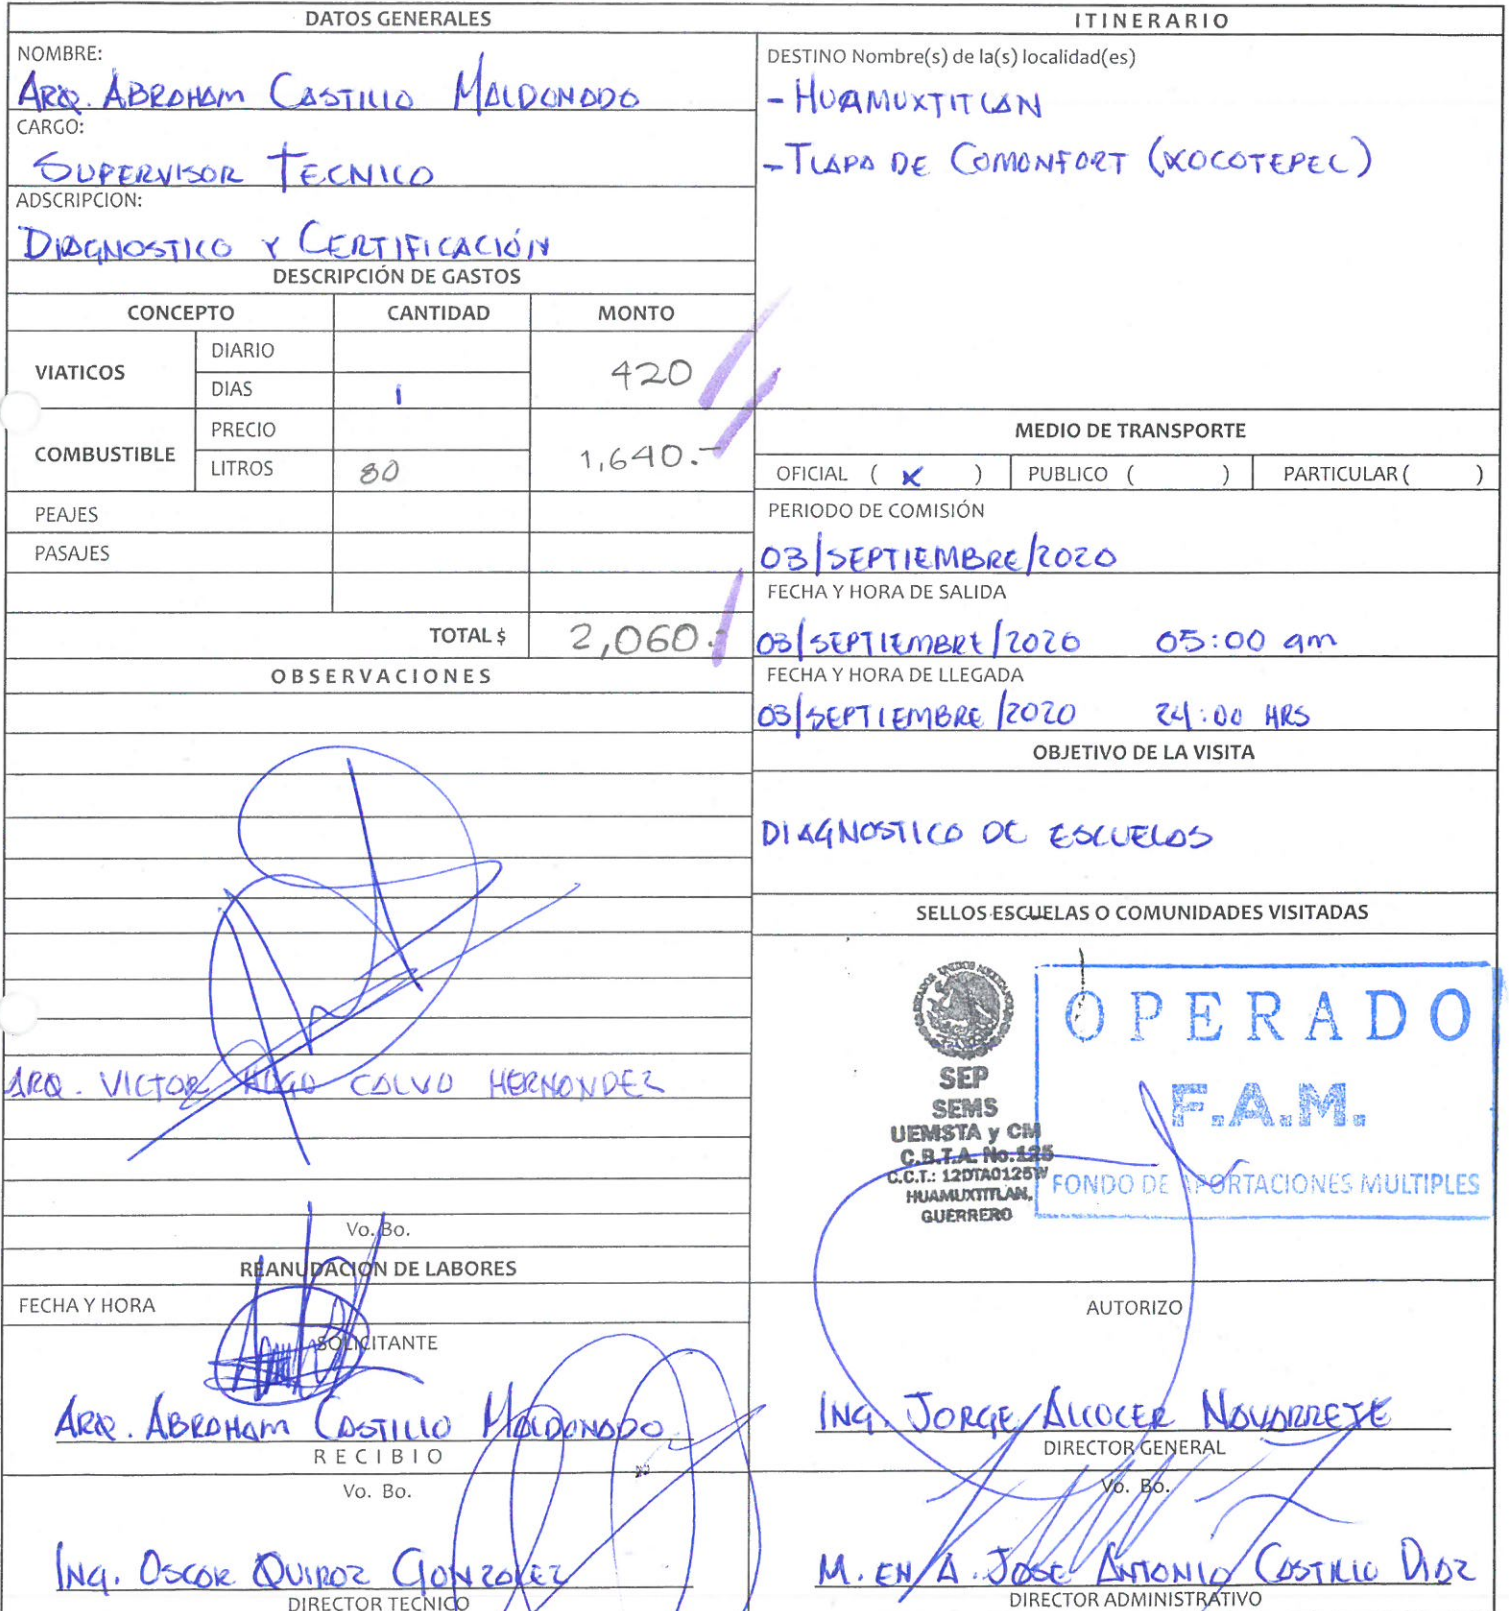 DATOS GENERALES
NOMBRE:
ARQ. ABRAHAM CASTILLO MALDONADO
CARGO:
SUPERVISOR TECNICO
ADSCRIPCION:
DIAGNOSTICO Y CERTIFICACIÓN
DESCRIPCIÓN DE GASTOS
CONCEPTO CANTIDAD MONTO
VIATICOS DIARIO
DIAS 1 420
COMBUSTIBLE PRECIO
LITROS 80 1,640.-
PEAJES
PASAJES
TOTAL $ 2,060.-
OBSERVACIONES
ARQ. VICTOR HUGO CALVO HERNANDEZ
Vo. Bo.
REANUDACION DE LABORES
FECHA Y HORA
SOLICITANTE
ARQ. ABRAHAM CASTILLO MALDONADO
RECIBIO
Vo. Bo.
ING. OSCAR QUIROZ GONZALEZ
DIRECTOR TECNICO
ITINERARIO
DESTINO Nombre(s) de la(s) localidad(es)
- HUAMUXTITLAN
- TLAPA DE COMONFORT (XOCOTEPEC)
MEDIO DE TRANSPORTE
OFICIAL ( X ) PUBLICO ( ) PARTICULAR ( )
PERIODO DE COMISIÓN
03/SEPTIEMBRE/2020
FECHA Y HORA DE SALIDA
03/SEPTIEMBRE/2020 05:00 am
FECHA Y HORA DE LLEGADA
03/SEPTIEMBRE/2020 24:00 HRS
OBJETIVO DE LA VISITA
DIAGNOSTICO DE ESCUELAS
SELLOS ESCUELAS O COMUNIDADES VISITADAS
SEP
SEMS
UEMSTA y CM
C.B.T.A. No.125
C.C.T.: 12DTA0125W
HUAMUXTITLAN,
GUERRERO
OPERADO
F.A.M.
FONDO DE APORTACIONES MULTIPLES
AUTORIZO
ING. JORGE ALCOCER NAVARRETE
DIRECTOR GENERAL
Vo. Bo.
M. EN A. JOSE ANTONIO CASTILLO DIAZ
DIRECTOR ADMINISTRATIVO